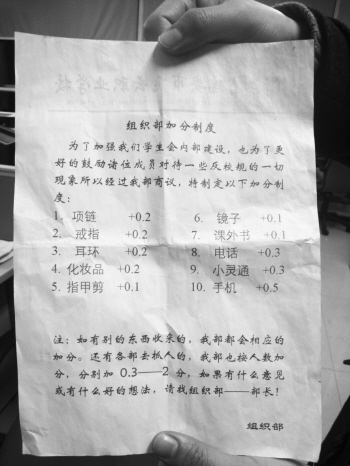 组织部加分制度
为了加强我们学生会内部建设，也为了更
好的鼓励诸位成员对待一些反校规的一切
现象所以经过我部商议，特制定以下加分制
度：
1、项链 +0.2
2、戒指 +0.2
3、耳环 +0.2
4、化妆品 +0.2
5、指甲剪 +0.1
6、镜子 +0.1
7、课外书 +0.1
8、电话 +0.3
9、小灵通 +0.3
10、手机 +0.5
注：如有别的东西收来的，我部都会相应的
加分。还有各部去抓人的，我部也按人数加
分，分别加 0.3——2 分，如果有什么意见
或有什么好的想法，请找组织部——部长！
组织部